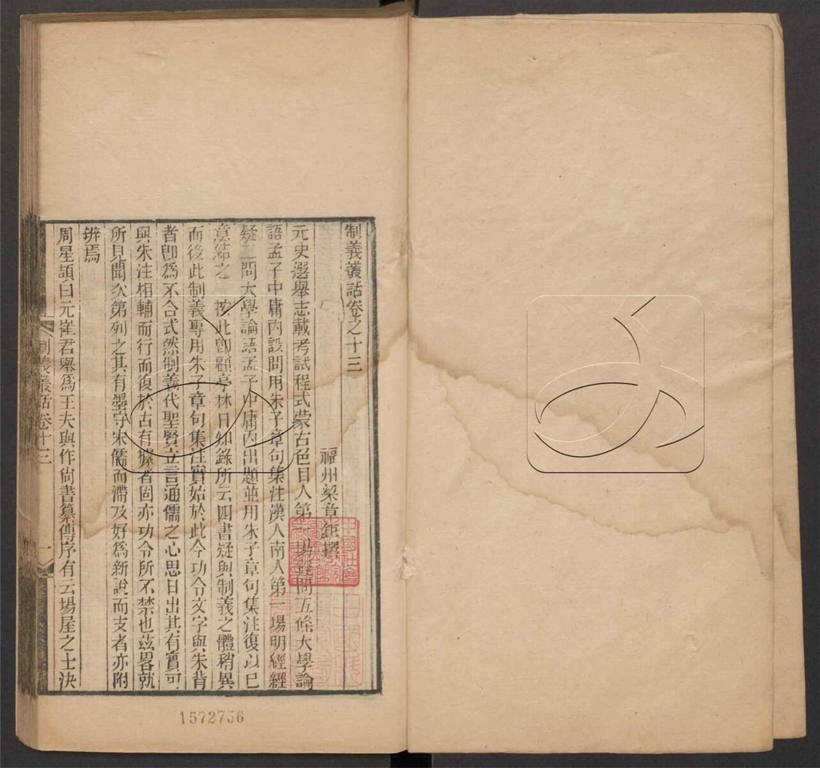 制義叢話卷之十三
福州梁章鉅撰
元史選舉志載考試程式蒙古色目人第一場經問五條大學論
語孟子中庸內設問用朱子章句集注漢人南人第一場明經經
疑二問大學論語孟子中庸內出題並用朱子章句集注復以己
意結之 按此卽顧亭林日知錄所云四書疑與制義之體稍異
而後此制義專用朱子章句集注實始於此今功令文字與朱背
者卽爲不合式然制義代聖賢立言通儒之心思日出其有實可
與朱注相輔而行而復於古有據者固亦功令所不禁也茲畧就
所見聞次第列之其有墨守宋儒而滯及好爲新說而支者亦附
辨焉
周星頡曰元崔君舉爲王夫與作尚書纂傳序有云場屋之士決
制義叢話卷十三
一
1572736